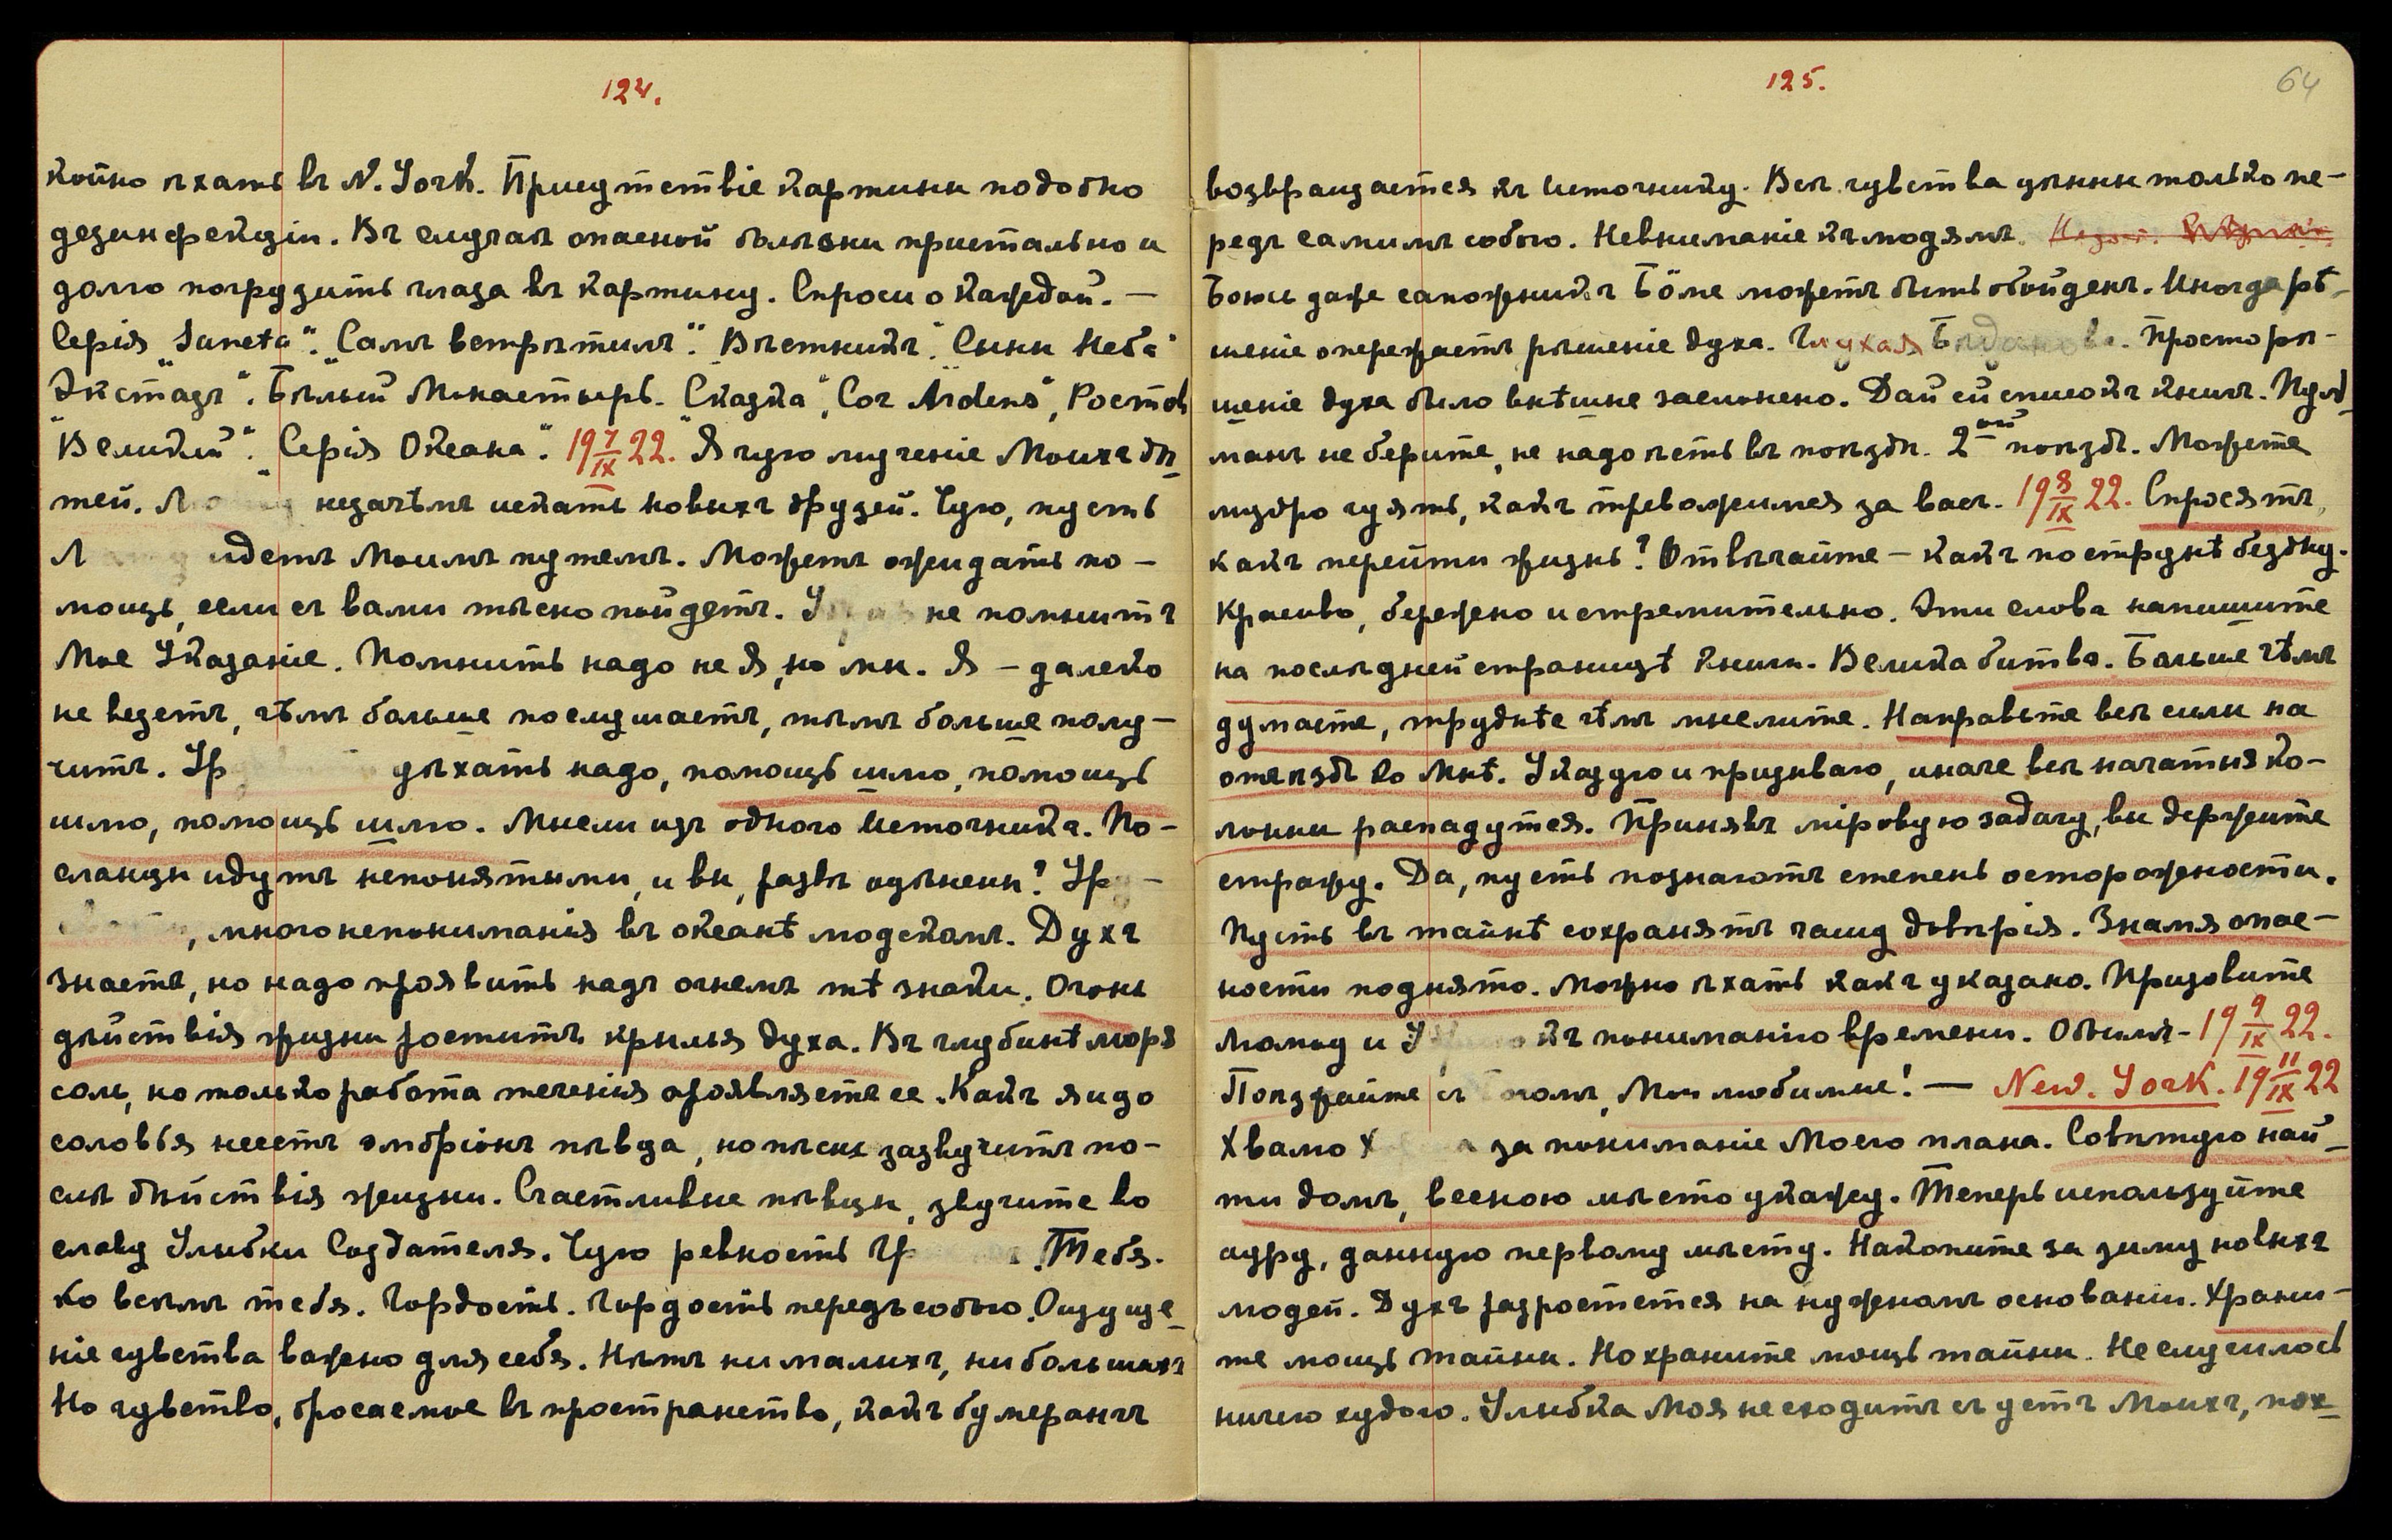 124.
койно ѣхать въ N. York. Присутствіе картины подобно
дезинфекціи. Въ случаѣ опасной болѣзни пристально и
долго погрузить глаза въ картину. Спроси о каждой. —
Серія „Sancta". „Самъ встрѣтилъ". „Вѣстникъ". „Сыны Неба"
„Экстазъ". „Бѣлый Монастырь. „Сказка", Cor Ardens", Ростовъ
„Великій". „Серія Океана". 19 7/IX 22. Я чую мученіе Моихъ дѣ-
тей. незачѣмъ искать новыхъ друзей. Чую, пусть
идетъ Моимъ путемъ. Можетъ ожидать по-
мощь, если съ вами тѣсно пойдетъ. не помнитъ
Мое Указаніе. Помнить надо не Я, но мы. Я — далеко
не ведетъ, чѣмъ больше послушаетъ, тѣмъ больше полу-
читъ. уѣхать надо, помощь шлю, помощь
шлю, помощь шлю. Мысли изъ одного Источника. По-
сланцы идутъ непонятыми, и вы, развѣ оцѣнены?
, много непониманія въ океанѣ людскомъ. Духъ
знаетъ, но надо проявить надъ огнемъ тѣ знаки. Огонь
дѣйствія жизни роститъ крылья духа. Въ глубинѣ моря
соль, но только работа теченія проявляетъ ее. Какъ яйцо
соловья несетъ эмбріонъ пѣвца, но пѣснь зазвучитъ по-
слѣ дѣйствія жизни. Счастливые пѣвцы, звучите во
славу Улыбки Создателя. Чую ревность Тебя.
Ко всѣмъ тебя. Гордость. Гордость передъ собою. Ощуще-
ніе чувства важно для себя. Нѣтъ ни малыхъ, ни большихъ
Но чувство, бросаемое въ пространство, какъ бумерангъ
125.
64
возвращается къ Источнику. Всѣ чувства цѣнны только пе-
редъ самимъ собою. Невниманіе къ людямъ.
Боюсь даже сапожникъ Бёме можетъ быть обойденъ. Иногда рѣ-
шеніе опережаетъ рѣшеніе духа. Глухая Просто рѣ-
шеніе духа было внѣшне заслонено. Дай ей списокъ книгъ. Пуль-
манъ не берите, не надо ѣсть въ поѣздѣ. 2ой поѣздъ. Можете
мудро чуять, какъ тревожимся за васъ. 19 8/IX 22. Спросятъ,
какъ перейти жизнь? Отвѣчайте — какъ по струнѣ бездну.
Красиво, бережно и стремительно. Эти слова напишите
на послѣдней страницѣ книги. Велика битва. Больше чѣмъ
думаете, труднѣе чѣмъ мыслите. Направьте всѣ силы на
отъѣздъ ко Мнѣ. Указую и призываю, иначе всѣ начатыя ко-
лонны распадутся. Принявъ міровую задачу, вы держите
стражу. Да, пусть познаютъ степень осторожности.
Пусть въ тайнѣ сохранятъ чашу довѣрія. Знамя опас-
ности поднято. Можно ѣхать какъ указано. Призовите
Люмоу и къ пониманію времени. Обѣимъ - 19 9/IX 22.
Поѣзжайте съ Богомъ, Мои любимые! — New. York. 19 11/IX 22
Хвалю за пониманіе Моего плана. Совѣтую най-
ти домъ, весною мѣсто укажу. Теперь используйте
ауру, данную первому мѣсту. Накопите за зиму новыхъ
людей. Духъ разростется на нужномъ основаніи. Храни-
те мощь тайны. Но храните мощь тайны. Не случилось
ничего худого. Улыбка Моя не сходитъ съ устъ Моихъ, пох-